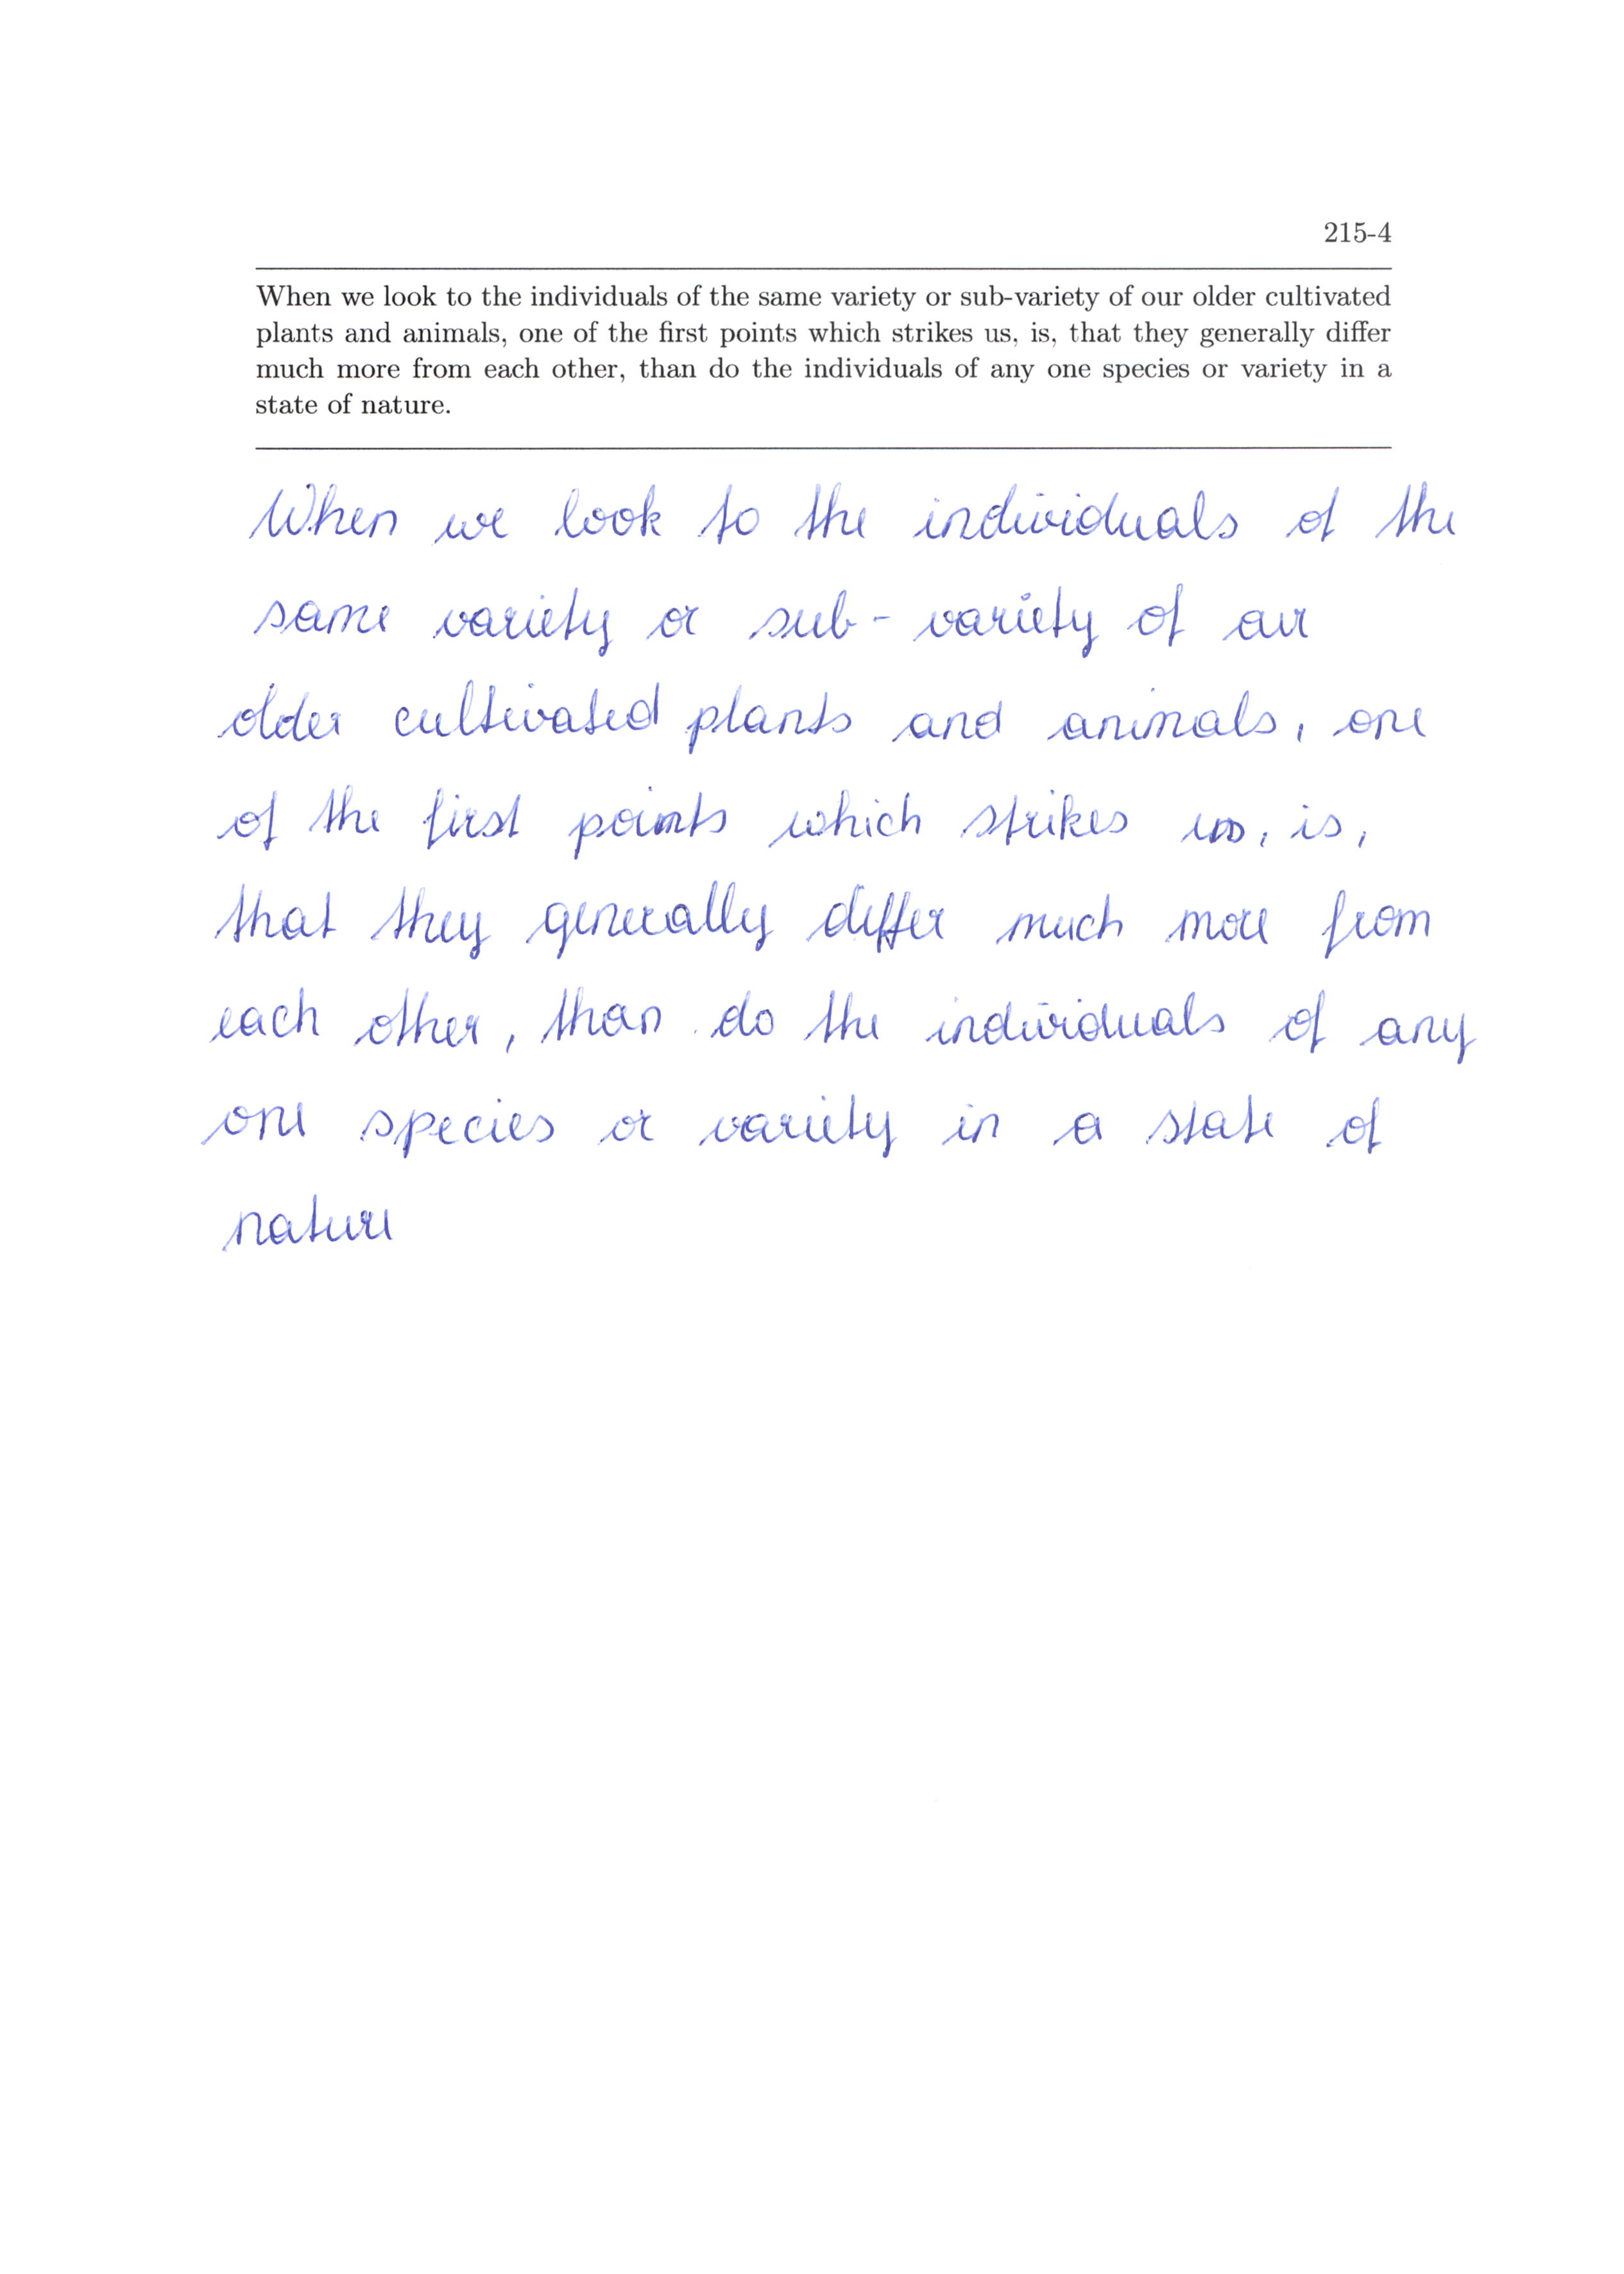 215-4
When we look to the individuals of the same variety or sub-variety of our older cultivated
plants and animals, one of the first points which strikes us, is, that they generally differ
much more from each other, than do the individuals of any one species or variety in a
state of nature.
When we look to the individuals of the
same variety or sub-variety of our
older cultivated plants and animals, one
of the first points which strikes us, is,
that they generally differ much more from
each other, than do the individuals of any
one species or variety in a state of
nature